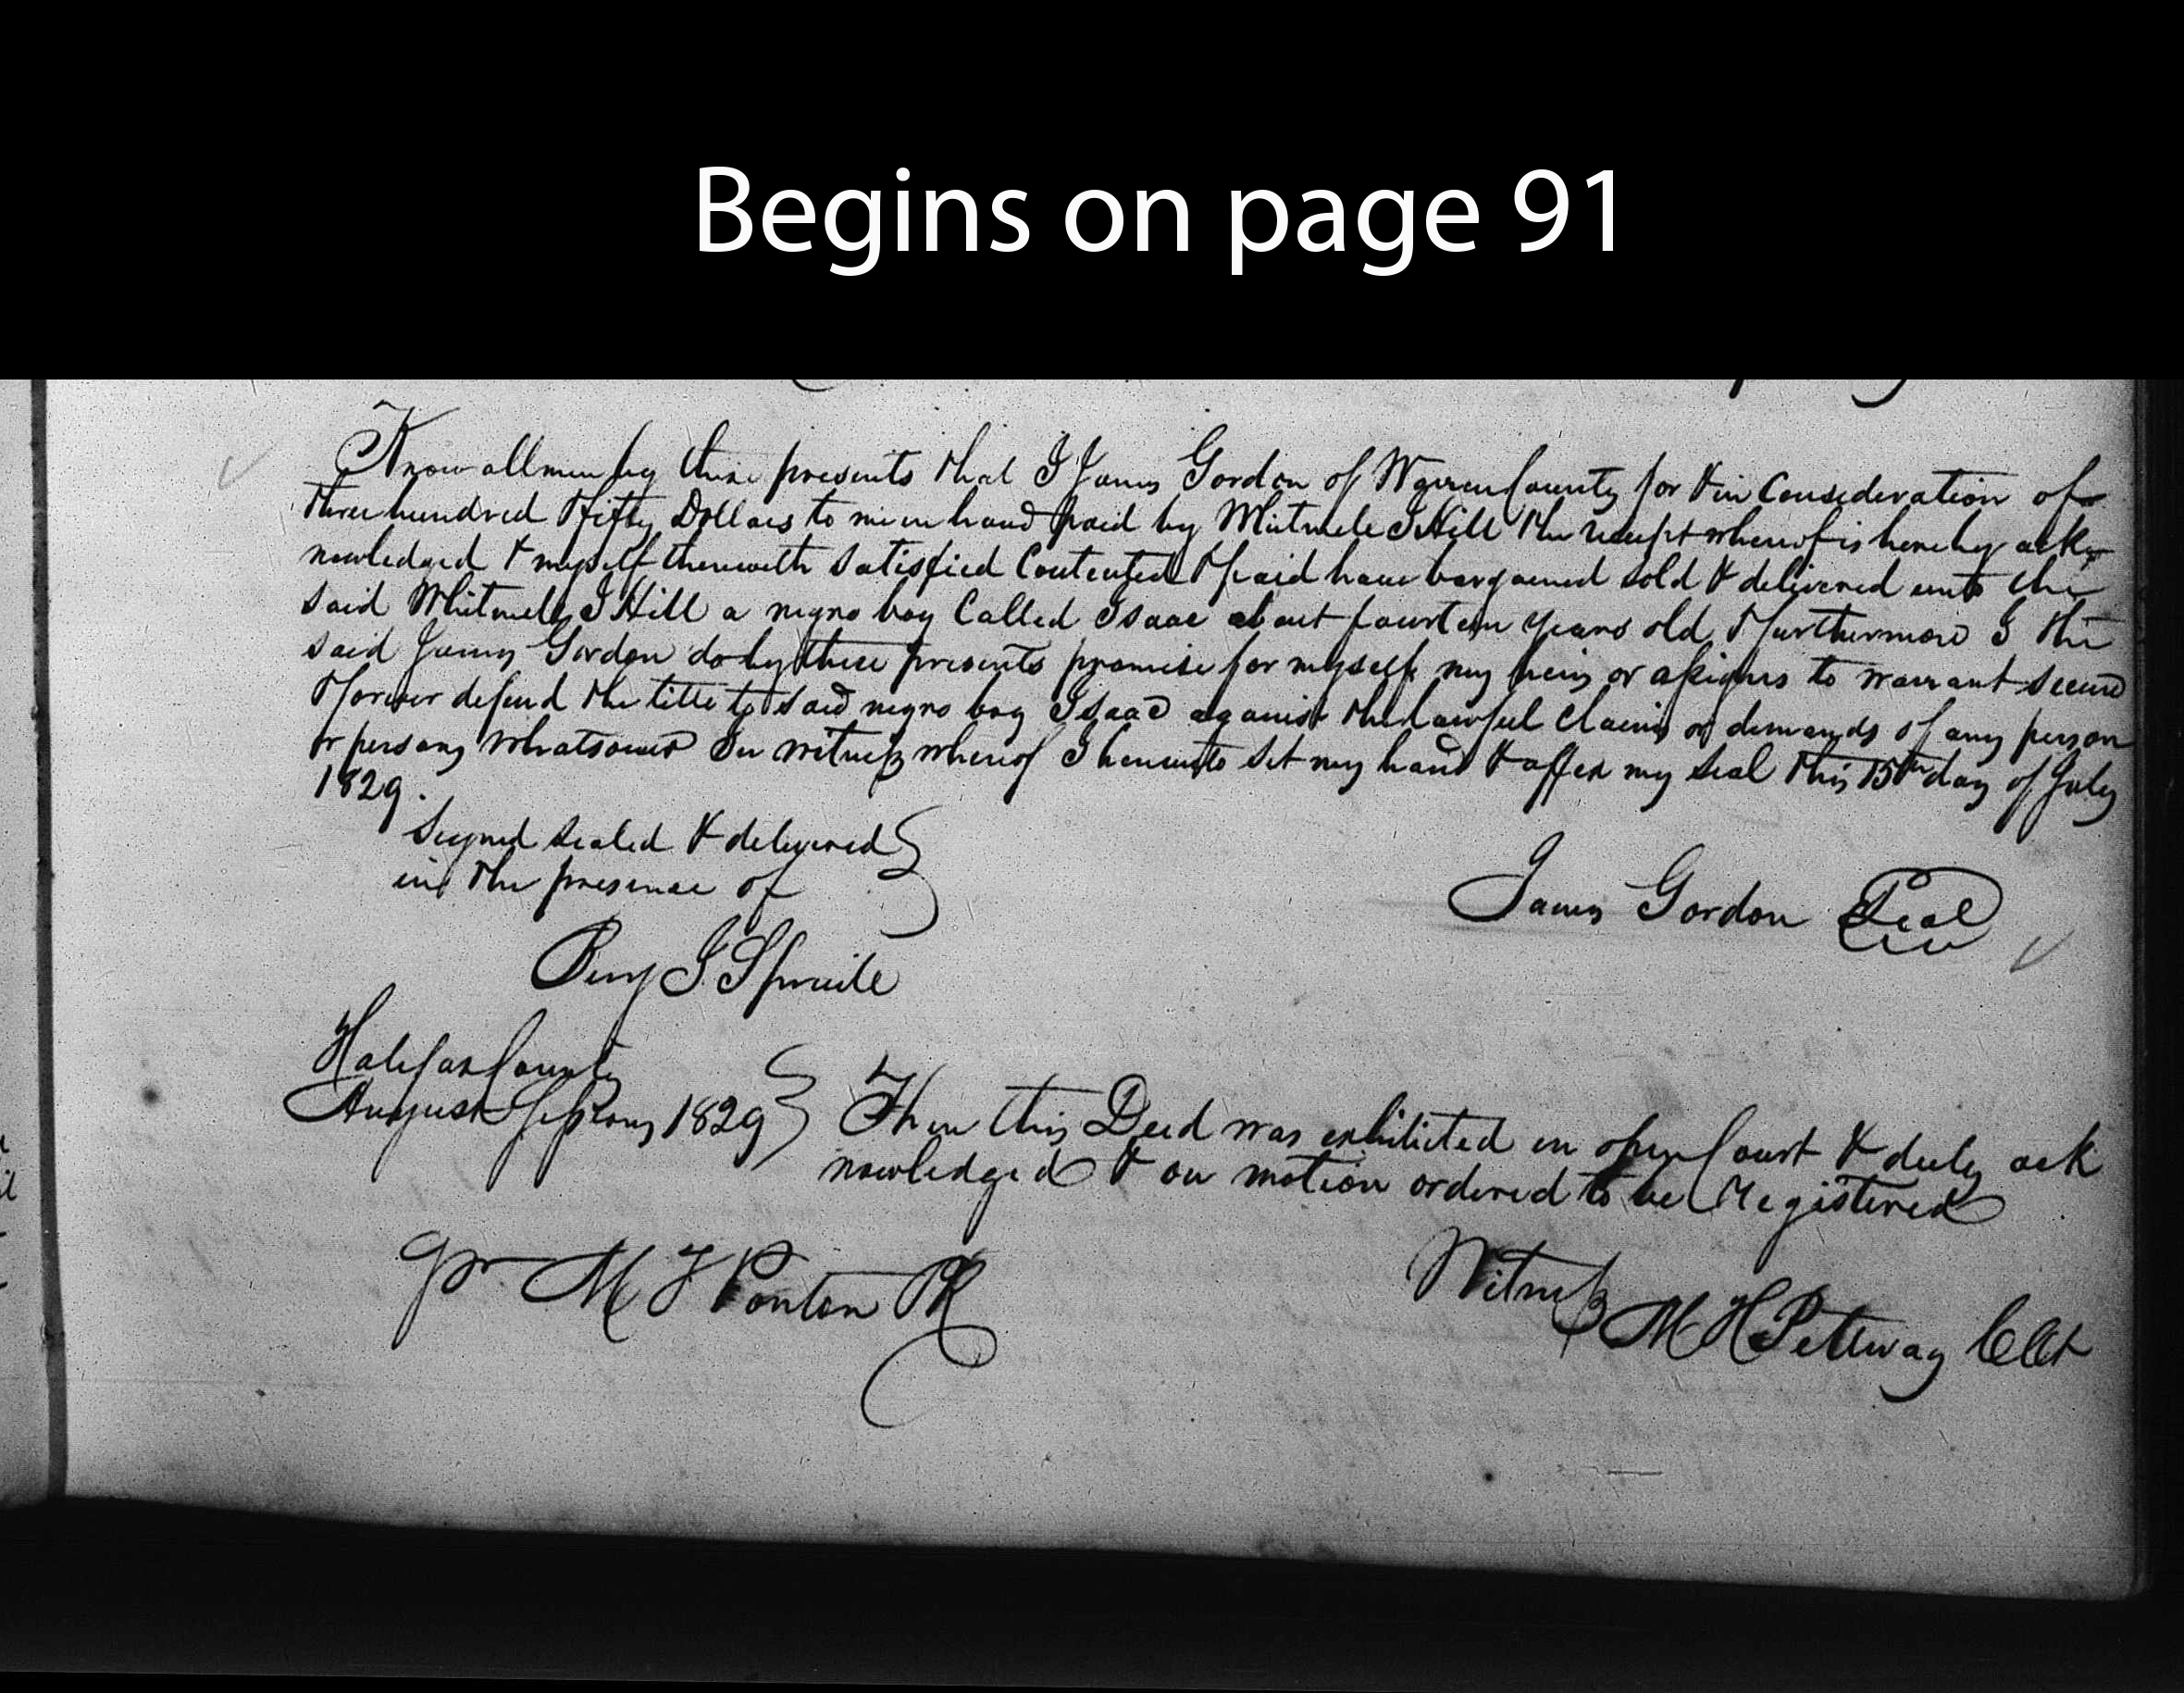 Begins on page 91
Know all men by these presents that I James Gordon of Warren County for & in Consideration of
three hundred & fifty Dollars to me in hand paid by Whitmele J Hill the receipt whereof is hereby ack
nowledged & myself therewith satisfied Contented & paid have bargained sold & delivered unto the
said Whitmele J Hill a negro boy Called Isaac about fourteen years old, & furthermore I the
said James Gordon do by these presents promise for myself my heirs or assigns to warrant secure
& forever defend the title to said negro boy Isaac against the lawful claims or demands of any person
or persons whatsoever In witness whereof I hereunto set my hand & affix my seal this 15th day of July
1829.
Signed sealed & delivered
in the presence of
James Gordon Seal
Benj J.
Halifax County
August Sessions 1829 Then this Deed was exhibited in open Court & duly ack
nowledged & on motion ordered to be Registered
Witness M H Pettway CClk
Pr M F Ponton PR